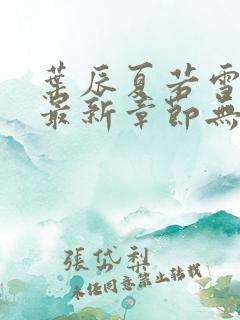 葉辰夏若雪
最新章節無
張岱梨
未经同意禁止转载